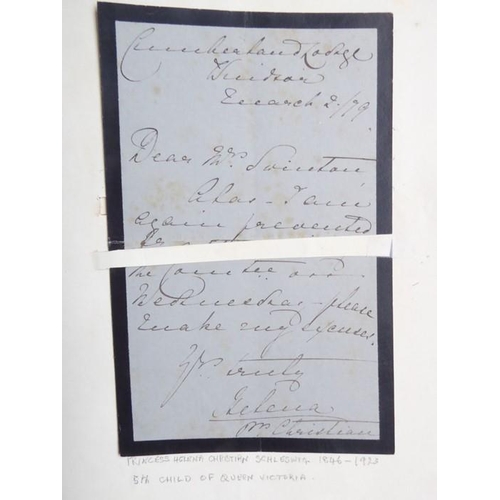 Cumberland Lodge
Windsor
March 2./79.
Dear Mrs. Swinton
Alas - I am
again prevented
the Comtee on
Wednesday - please
make my excuses.
Yrs truly
Helena
Pss Christian
PRINCESS HELENA CHRISTIAN SCHLESWIG 1846-1923
5th CHILD OF QUEEN VICTORIA.